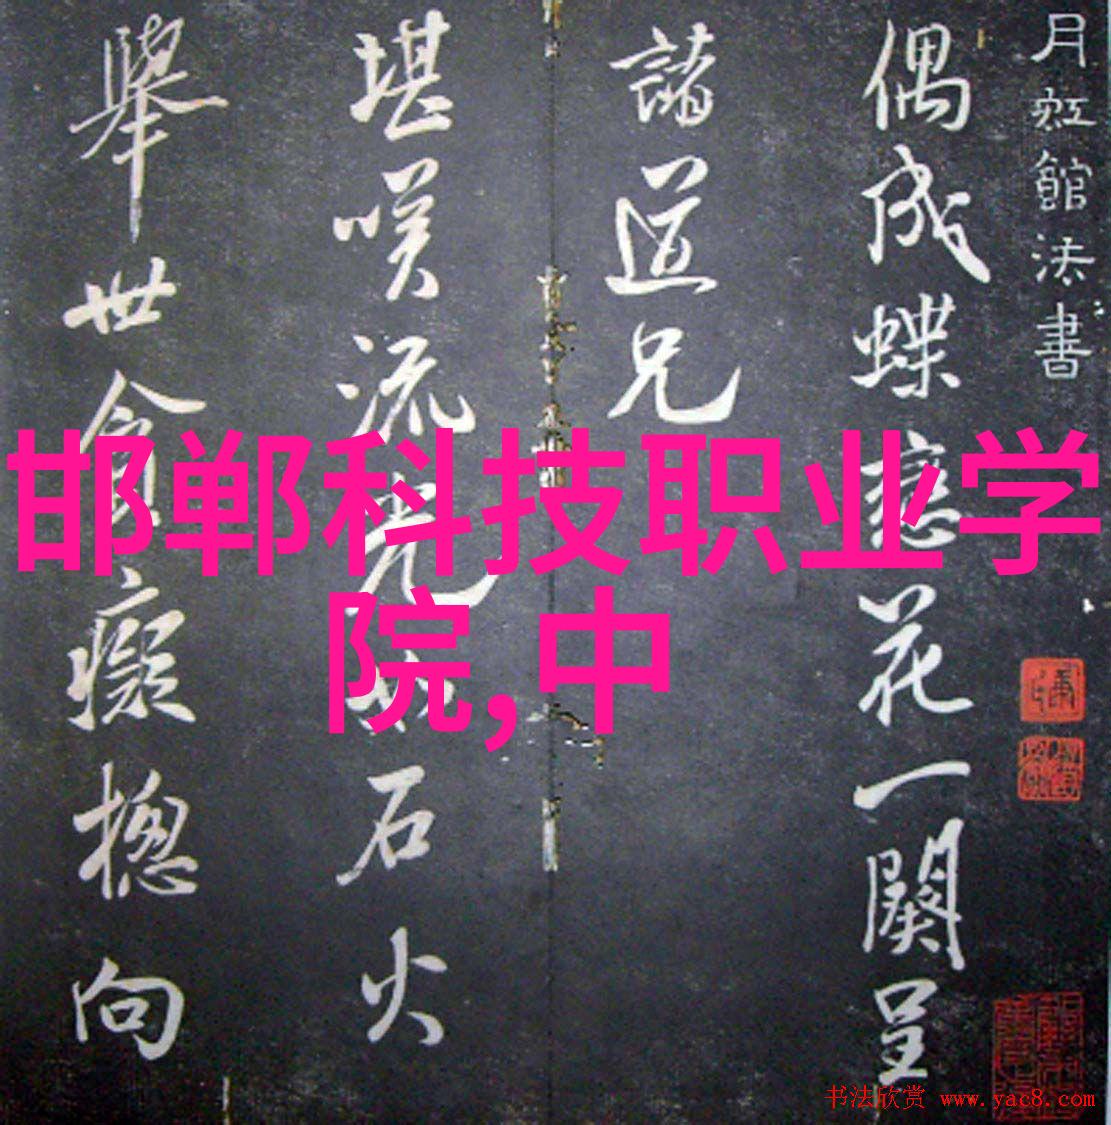 月虹館法書
偶成蝶戀花一闋呈
諸道兄
堪咲流光如石火
舉世貪癡揔向
邯郸科技职业学
院,中
书法欣赏 www.yac8.com